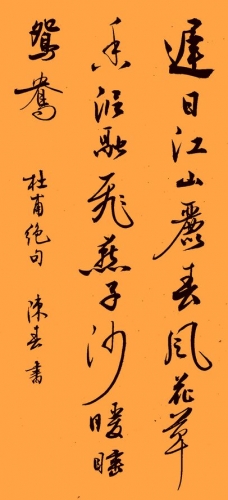 遲日江山麗春風花草
香泥融飛燕子沙暖睡
鴛鴦
杜甫絕句 陳春書